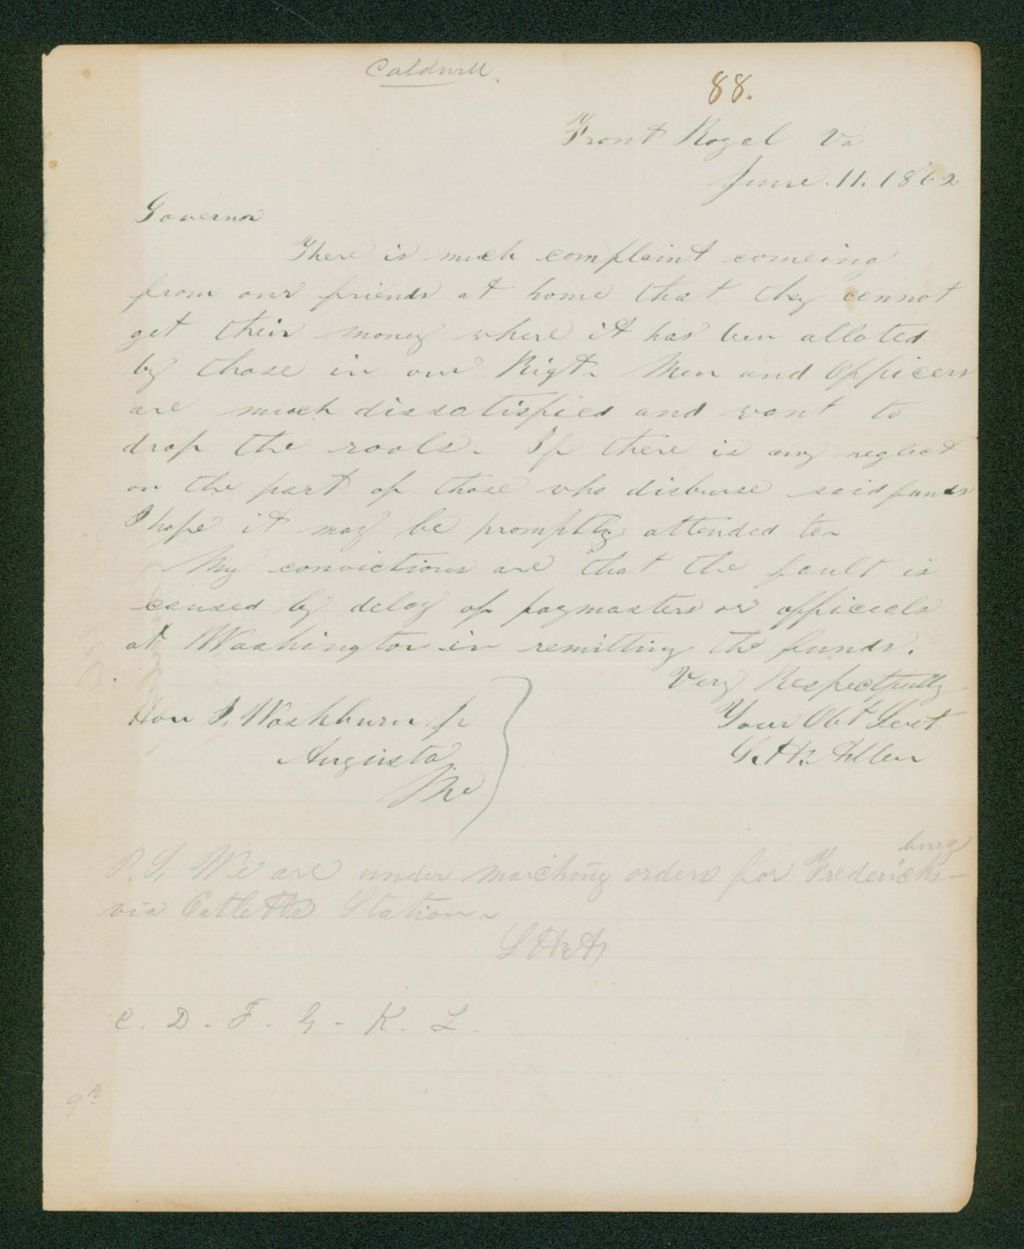 Caldwell.
88.
Front Royal Va
June. 11. 1862
Governor
There is much complaint comeing
from our friends at home that they cannot
get their money where it has ben alloted
by those in our Rigt. Men and Officers
are much dissatisfied and want to
drop the rools. If there is any neglect
on the part of those who disburse said funds
I hope it may be promptly attended to
My convictions are that the fault is
caused by delay of paymasters or officials
at Washington in remitting the funds.
Very Respectfully
Your Obt Servt
G. H. Allen
Hon I. Washburn Jr
Augusta
Me
P.S. We are under marching orders for Fredericks-
burg
via Catletts Station
S H A
C. D. F. G. K. L.